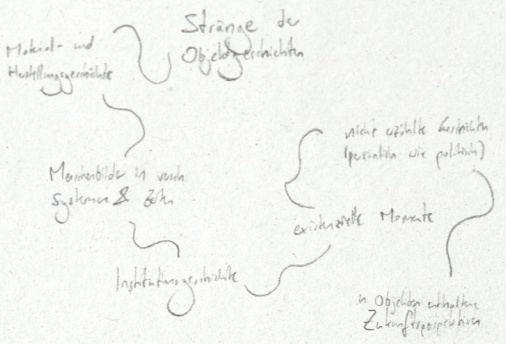 Stränge der
Objektgeschichten
Material- und
Herstellungsgeschichte
Menschenbilder in versch
Systemen & Zeiten
Institutionsgeschichte
existenzielle Momente
nicht erzählte Geschichten
(persönlich wie politisch)
in Objekten enthaltene
Zukunftsperspektiven